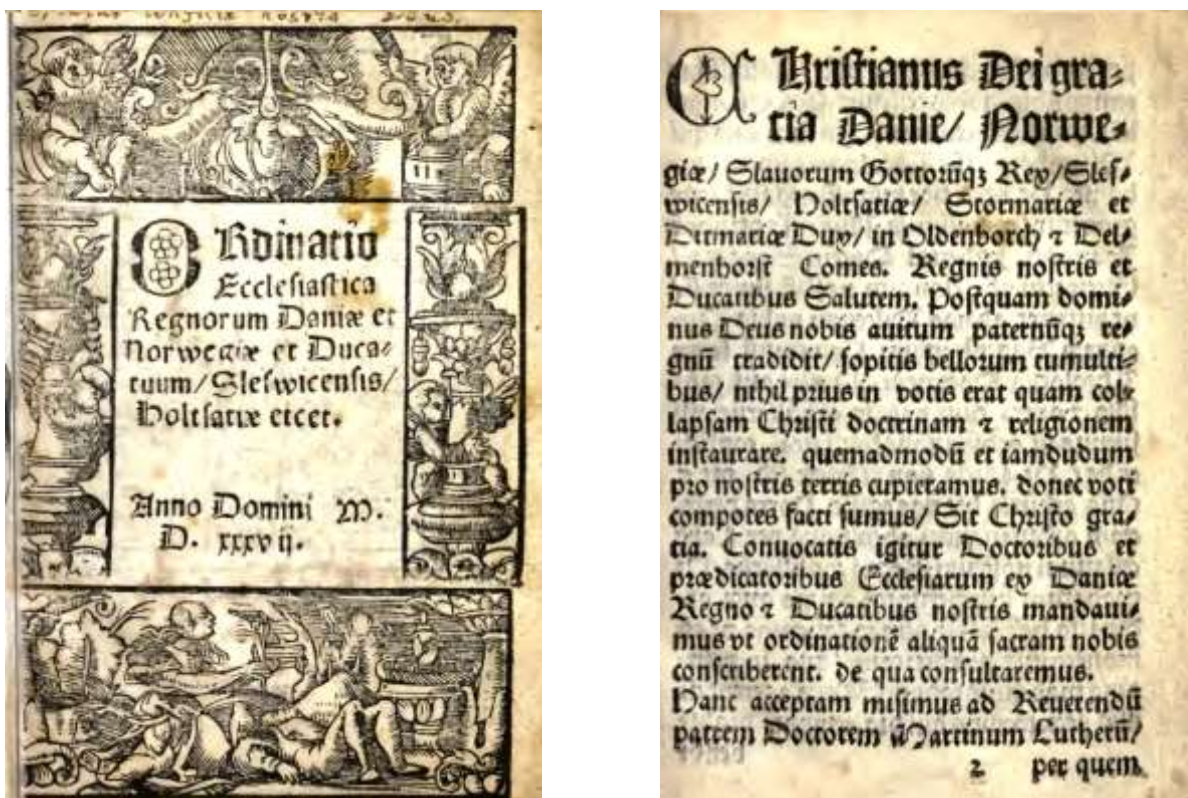 ORdinatio
Ecclesiastica
Regnorum Daniæ et
Norwegiæ et Duca⸗
tuum/ Sleswicensis/
Holtsatiæ etcet.
Anno Domini M.
D. xxxvij.
CHristianus Dei gra⸗
tia Danie/ Norwe⸗
giæ/ Slauorum Gottorūqȝ Rex/ Sles⸗
wicensis/ Holtsatiæ/ Stormariæ et
Ditmariæ Dux/ in Oldenborch ⁊ Del⸗
menhorst Comes. Regnis nostris et
Ducatibus Salutem. Postquam domi⸗
nus Deus nobis auitum paternūqȝ re⸗
gnū tradidit/ sopitis bellorum tumulti⸗
bus/ nihil prius in votis erat quam col⸗
lapsam Christi doctrinam ⁊ religionem
instaurare. quemadmodū et iamdudum
pro nostris terris cupieramus. donec voti
compotes facti sumus/ Sit Christo gra⸗
tia. Conuocatis igitur Doctoribus et
prædicatoribus Ecclesiarum ex Daniæ
Regno ⁊ Ducatibus nostris mandaui⸗
mus vt ordinationē aliquā sacram nobis
conscriberent. de qua consultaremus.
Hanc acceptam misimus ad Reuerendū
patrem Doctorem Martinum Lutherū/
2 per quem